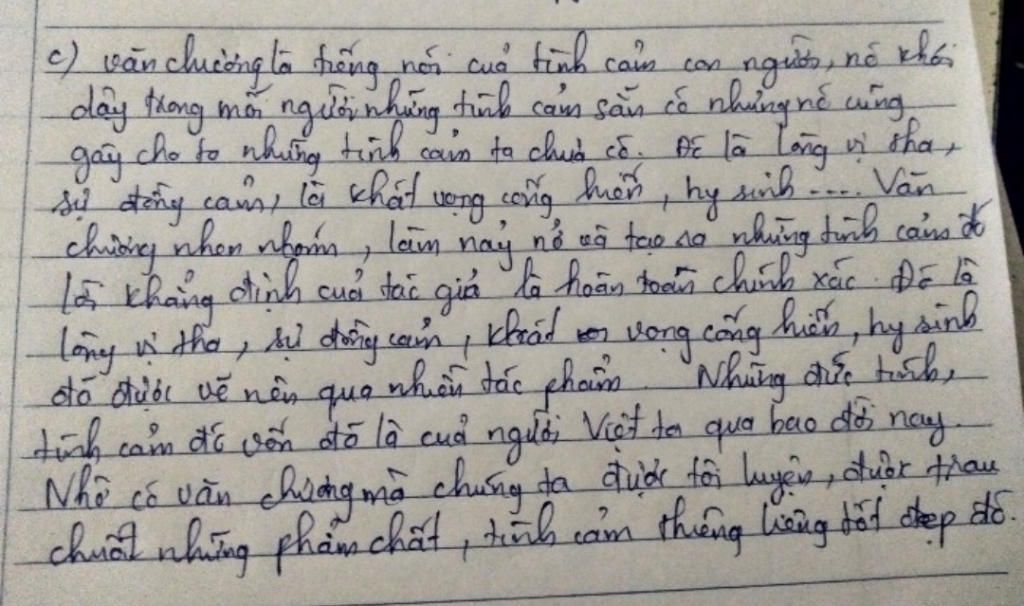 c) văn chường là tiếng nói cuả tình cảm con người, nó khơi
dậy trong mỗi người những tình cảm sẵn có nhưng nó cũng
gây cho ta những tình cảm ta chưa có. Đó là lòng vị tha,
sự đồng cảm, là khát vọng cống hiến, hy sinh .... Văn
chương nhen nhóm, làm nảy nở và tạo ra những tình cảm đó
lời khẳng định cuả tác giả là hoàn toàn chính xác. Đó là
lòng vị tha, sự đồng cảm, khát vọng cống hiến, hy sinh
đã được vẽ nên qua nhiều tác phẩm. Những đức tính,
tình cảm đó vốn đã là cuả người Việt ta qua bao đời nay.
Nhờ có văn chương mà chúng ta được tôi luyện, được trau
chuốt những phẩm chất, tình cảm thiêng liêng tốt đẹp đó.